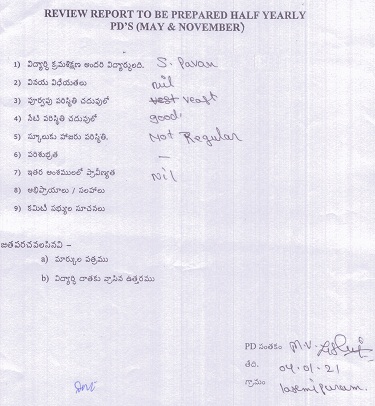 REVIEW REPORT TO BE PREPARED HALF YEARLY
PD'S (MAY & NOVEMBER)
1) విద్యార్థి క్రమశిక్షణ అందరి విద్యార్థులది. S. Pavan
2) వినయ విధేయతలు nil
3) పూర్వపు పరిస్థితి చదువులో
4) నేటి పరిస్థితి చదువులో good.
5) స్కూలుకు హాజరు పరిస్థితి. Not Regular
6) పరిశుభ్రత —
7) ఇతర అంశములలో ప్రావీణ్యత Nil
8) అభిప్రాయాలు / సలహాలు
9) కమిటీ సభ్యుల సూచనలు
జతపరచవలసినవి –
a) మార్కుల పత్రము
b) విద్యార్థి దాతకు వ్రాసిన ఉత్తరము
PD సంతకం M.V.
తేది. 04.01.21
గ్రామం laxmipuram.